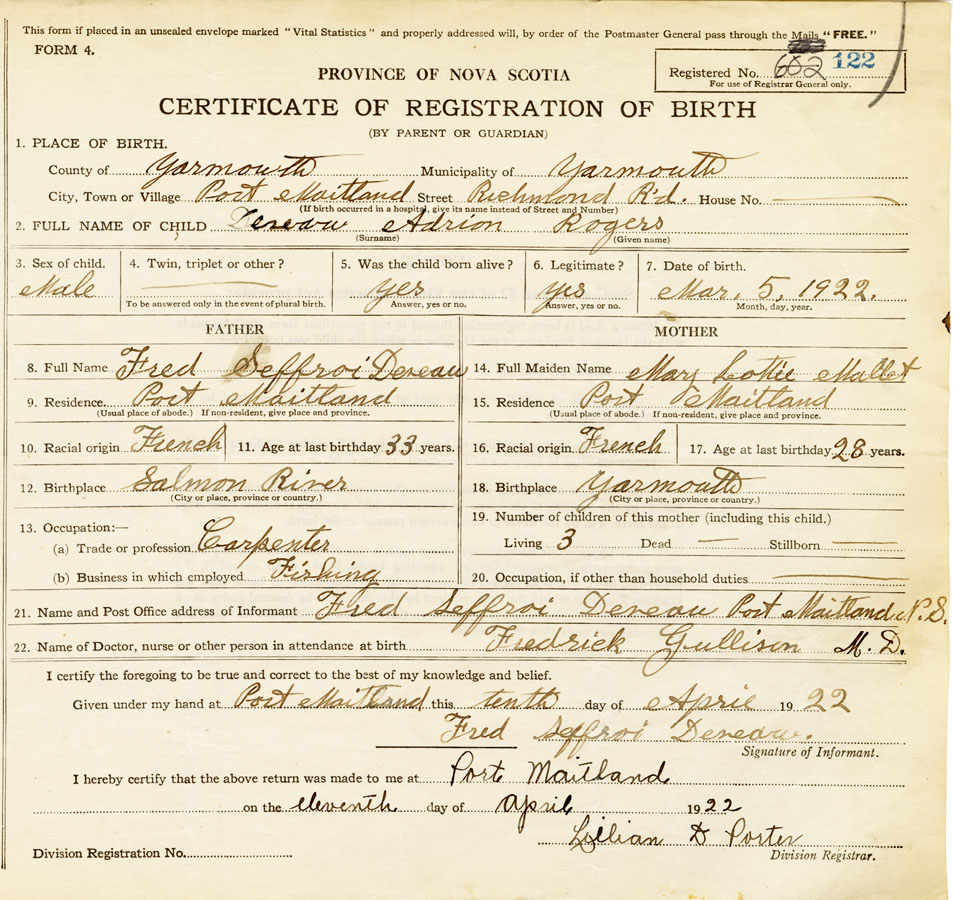 This form if placed in an unsealed envelope marked "Vital Statistics" and properly addressed will, by order of the Postmaster General pass through the Mails "FREE."
FORM 4.
Registered No. 652 122
For use of Registrar General only.
PROVINCE OF NOVA SCOTIA
CERTIFICATE OF REGISTRATION OF BIRTH
(BY PARENT OR GUARDIAN)
1. PLACE OF BIRTH.
County of Yarmouth Municipality of Yarmouth
City, Town or Village Port Maitland Street Richmond R'd. House No.
(If birth occurred in a hospital, give its name instead of Street and Number)
2. FULL NAME OF CHILD Deveau Adrion Rogers
(Surname) (Given name)
3. Sex of child. 4. Twin, triplet or other? 5. Was the child born alive? 6. Legitimate? 7. Date of birth.
Male yes yes Mar. 5, 1922.
To be answered only in the event of plural birth. Answer, yes or no. Answer, yes or no. Month, day, year.
FATHER MOTHER
8. Full Name Fred Seffroi Deveau 14. Full Maiden Name Mary Lottie Mallet
9. Residence. Port Maitland 15. Residence Port Maitland
(Usual place of abode.) If non-resident, give place and province. (Usual place of abode.) If non-resident, give place and province.
10. Racial origin French 11. Age at last birthday 33 years. 16. Racial origin French 17. Age at last birthday 28 years.
12. Birthplace Salmon River 18. Birthplace Yarmouth
(City or place, province or country.) (City or place, province or country.)
13. Occupation:— 19. Number of children of this mother (including this child.)
(a) Trade or profession Carpenter Living 3 Dead — Stillborn
(b) Business in which employed Fishing 20. Occupation, if other than household duties
21. Name and Post Office address of Informant Fred Seffroi Deveau Port Maitland N.S.
22. Name of Doctor, nurse or other person in attendance at birth Fredrick Gullison M.D.
I certify the foregoing to be true and correct to the best of my knowledge and belief.
Given under my hand at Port Maitland this tenth day of April 1922
Fred Seffroi Deveau.
Signature of Informant.
I hereby certify that the above return was made to me at Port Maitland
on the eleventh day of April 1922
Lillian D Porter
Division Registration No. Division Registrar.